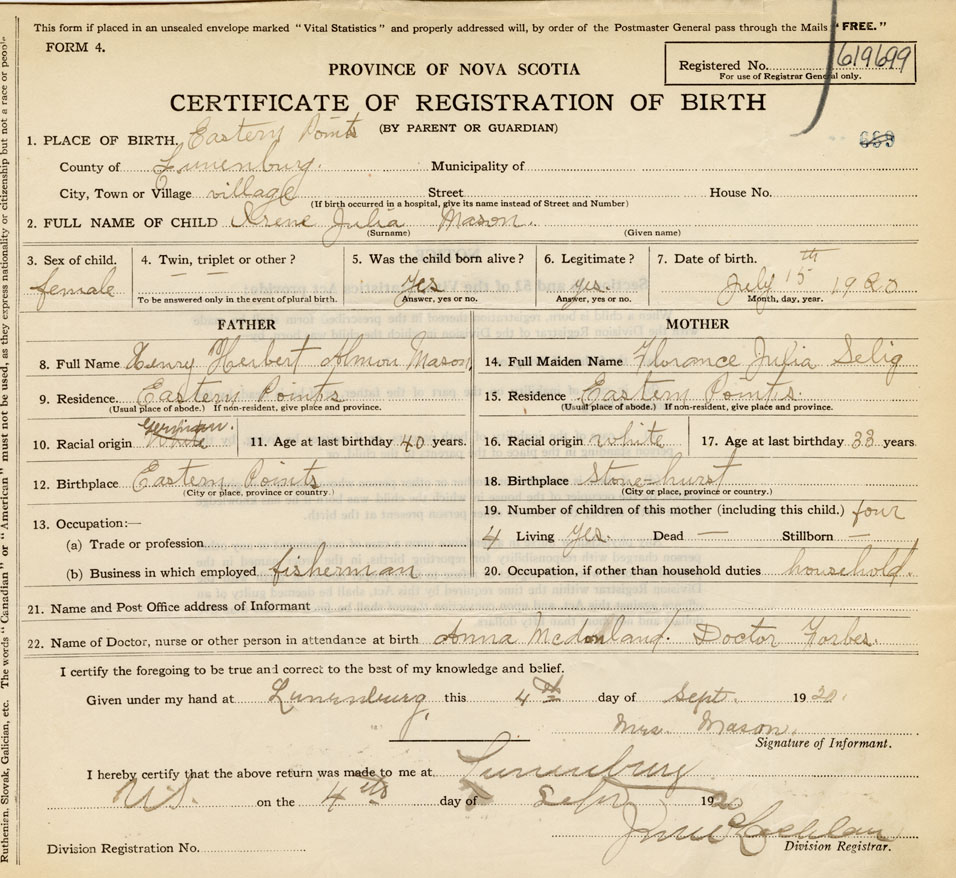 This form if placed in an unsealed envelope marked "Vital Statistics" and properly addressed will, by order of the Postmaster General pass through the Mails "FREE."
FORM 4.
Registered No. 619699
For use of Registrar General only.
PROVINCE OF NOVA SCOTIA
CERTIFICATE OF REGISTRATION OF BIRTH
(BY PARENT OR GUARDIAN)
1. PLACE OF BIRTH. Eastern Points
County of Lunenburg. Municipality of
City, Town or Village village Street House No.
(If birth occurred in a hospital, give its name instead of Street and Number)
2. FULL NAME OF CHILD Irene Julia Mason.
(Surname) (Given name)
3. Sex of child. 4. Twin, triplet or other? 5. Was the child born alive? 6. Legitimate? 7. Date of birth.
female — — Yes yes. July 15th 1920
To be answered only in the event of plural birth. Answer, yes or no. Answer, yes or no. Month, day, year.
FATHER MOTHER
8. Full Name Henry Herbert Almon Mason 14. Full Maiden Name Florance Julia Selig
9. Residence. Eastern Points 15. Residence Eastern Points.
(Usual place of abode.) If non-resident, give place and province. (Usual place of abode.) If non-resident, give place and province.
German.
10. Racial origin white 11. Age at last birthday 40 years. 16. Racial origin white 17. Age at last birthday 33 years
12. Birthplace Eastern Points 18. Birthplace Stonehurst
(City or place, province or country.) (City or place, province or country.)
13. Occupation:— 19. Number of children of this mother (including this child.) four
(a) Trade or profession 4 Living yes. Dead — Stillborn —
(b) Business in which employed fisherman 20. Occupation, if other than household duties household.
21. Name and Post Office address of Informant
22. Name of Doctor, nurse or other person in attendance at birth Anna Doctor Forbes.
I certify the foregoing to be true and correct to the best of my knowledge and belief.
Given under my hand at Lunenburg, this 4th day of Sept. 1920.
Mrs. Mason.
Signature of Informant.
I hereby certify that the above return was made to me at Lunenburg
N.S. on the 4th day of Sept 1920
Division Registration No. Division Registrar.
Ruthenien, Slovak, Galician, etc. The words "Canadian" or "American" must not be used, as they express nationality or citizenship but not a race or people